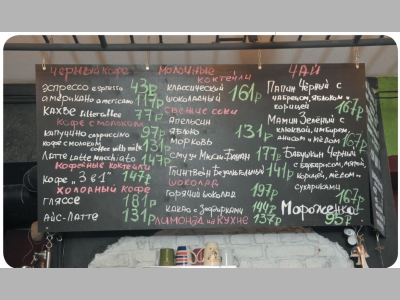 Чёрный кофе
эспрессо espresso 43р
американо americano 117р
КАХВЕ filtercoffee 77р
кофе с молоком
капучино cappuccino 97р
кофе с молоком coffee with milk 131р
Латте Latte macchiato 147р
Кофейные коктейли
Кофе "3 в 1" 147р
Холодный кофе
глясе 181р
айс-латте 131р
Молочные коктейли
классический
шоколадный 161р
свежие соки
апельсин
яблоко
морковь 131р
смузи 177р
Глинтвейн Безалкогольный 141р
Шоколад
горячий шоколад 197р
какао с зефирками 149р
Лимонад из кухни 137р
ЧАЙ
Папин Чёрный с
чабрецом, яблоком и
корицей 167р
Мамин Зелёный с
клюквой, имбирем,
анисом и мёдом 167р
Бабушкин Чёрный
с бадьяном, мятой,
корицей, мёдом и
сухариками 167р
Мороженка 95р